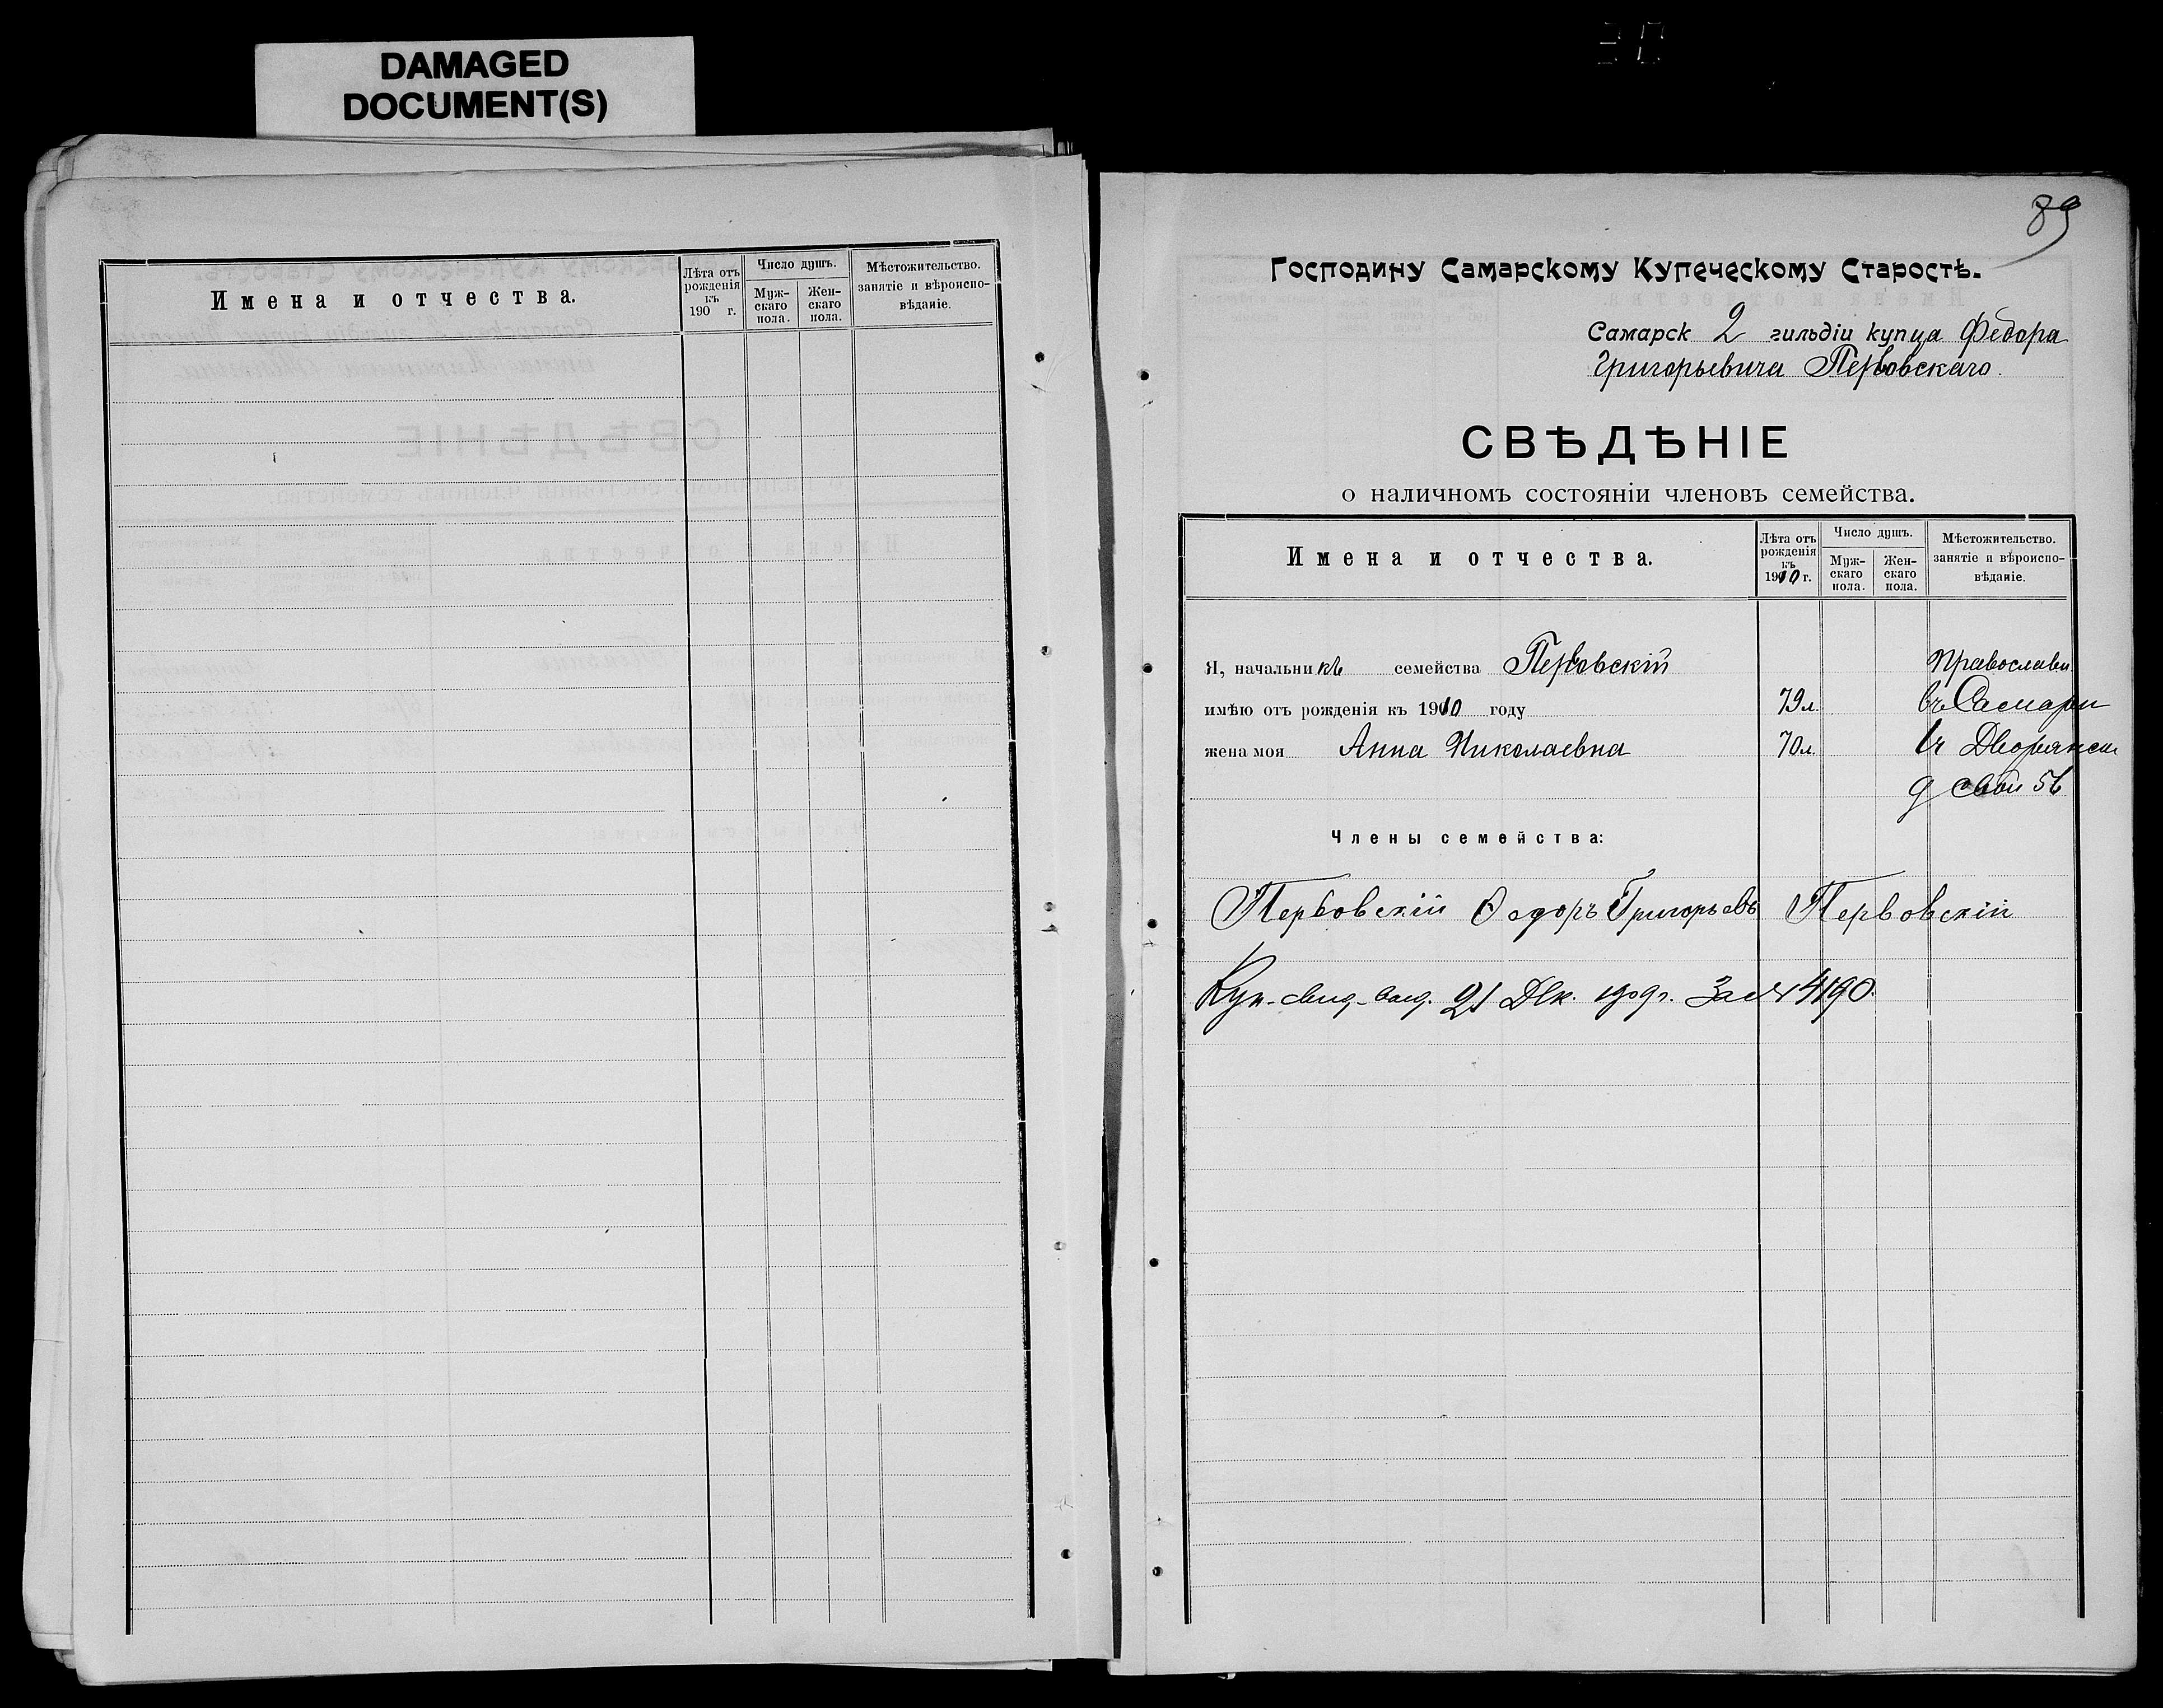 DAMAGED
DOCUMENT(S)
Имена и отчества.
Лѣта отъ рожденія къ 190 г.
Число душъ.
Мужскаго пола.
Женскаго пола.
Мѣстожительство. занятіе и вѣроисповѣданіе.
89
Господину Самарскому Купеческому Старостѣ.
Самарск 2 гильдіи купца Федора
Григорьевича Первовскаго.
СВѢДѢНІЕ
о наличномъ состояніи членовъ семейства.
Имена и отчества.
Лѣта отъ рожденія къ 1910 г.
Число душъ.
Мужскаго пола.
Женскаго пола.
Мѣстожительство. занятіе и вѣроисповѣданіе.
Я, начальникъ семейства Первовскій Православн
имѣю отъ рожденія къ 1910 году 79 л. въ Самари
жена моя Анна Николаевна 70 л. Дворянск
Члены семейства:
Первовскій Ѳедоръ Григорьевъ Первовскій
Куп. свид. 21 Дек. 1909 г. За № 4190.